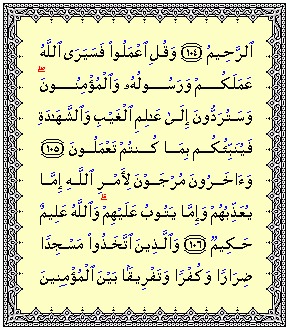 ٱلرَّحِيمُ ١٠٤ وَقُلِ ٱعْمَلُوا۟ فَسَيَرَى ٱللَّهُ
عَمَلَكُمْ وَرَسُولُهُۥ وَٱلْمُؤْمِنُونَ ۖ
وَسَتُرَدُّونَ إِلَىٰ عَـٰلِمِ ٱلْغَيْبِ وَٱلشَّهَـٰدَةِ
فَيُنَبِّئُكُم بِمَا كُنتُمْ تَعْمَلُونَ ١٠٥
وَءَاخَرُونَ مُرْجَوْنَ لِأَمْرِ ٱللَّهِ إِمَّا
يُعَذِّبُهُمْ وَإِمَّا يَتُوبُ عَلَيْهِمْ ۗ وَٱللَّهُ عَلِيمٌ
حَكِيمٌ ١٠٦ وَٱلَّذِينَ ٱتَّخَذُوا۟ مَسْجِدًا
ضِرَارًا وَكُفْرًا وَتَفْرِيقًۢا بَيْنَ ٱلْمُؤْمِنِينَ